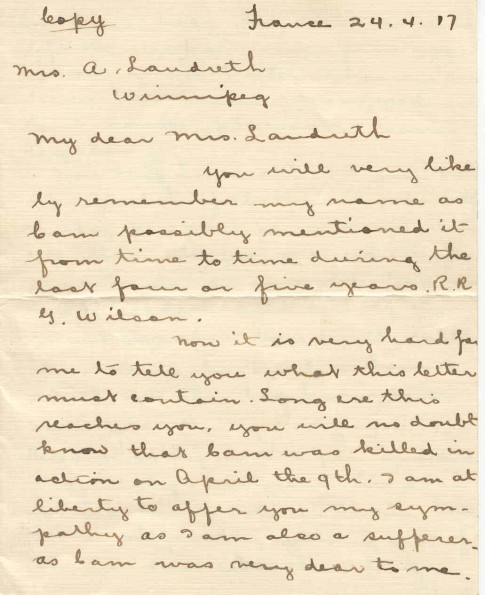 Copy France 24.4.17
Mrs. A. Laudreth
Winnipeg
My dear Mrs. Laudreth
you will very like
ly remember my name as
Cam possibly mentioned it
from time to time during the
last four or five years. R.R
G. Wilson.
Now it is very hard for
me to tell you what this letter
must contain. Long ere this
reaches you, you will no doubt
know that Cam was killed in
action on April the 9th. I am at
liberty to offer you my sym-
pathy as I am also a sufferer-
as Cam was very dear to me.